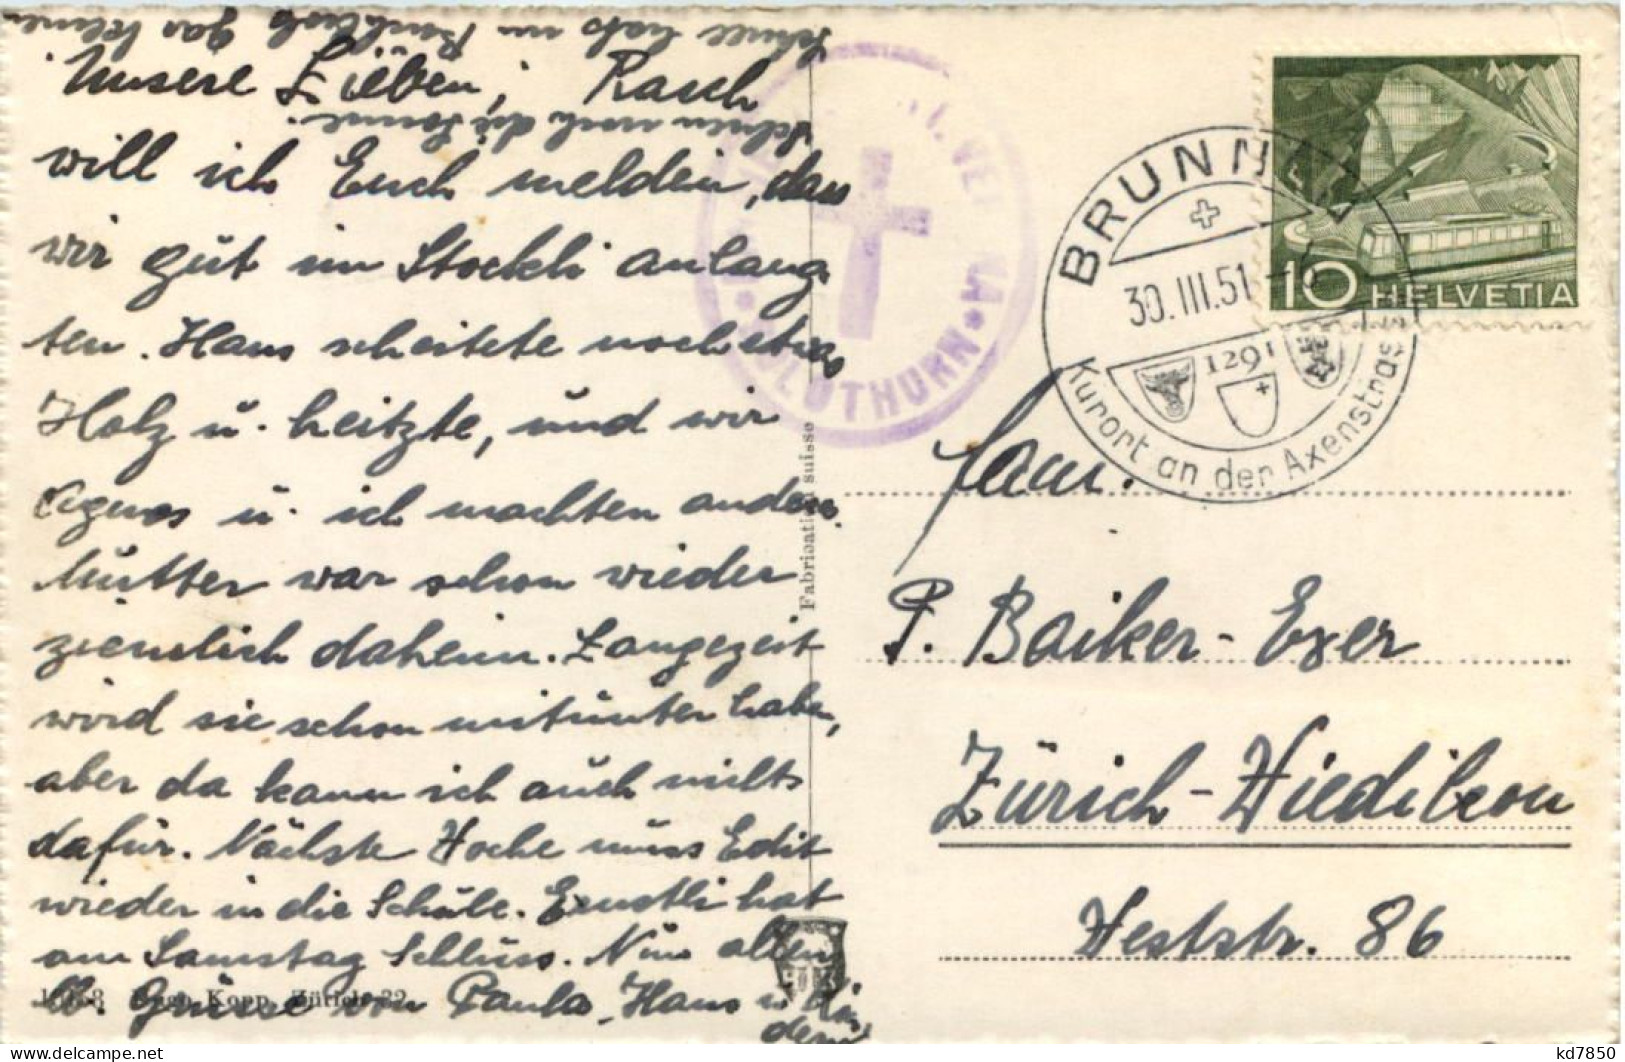 Schnee hats im
Unsere Lieben, Rasch
Schnee noch die Sonne.
will ich Euch melden, dass
wir gut im Stöckli anlang
ten. Hans scheitete noch etwas
Holz u. heitzte, und wir
Agnes u. ich machten andere.
Mutter war schon wieder
ziemlich daheim. Langezeit
wird sie schon mitunter haben,
aber da kann ich auch nichts
dafür. Nächste Woche muss Edit
wieder in die Schule. Ernstli hat
am Samstag Schluss. Nun allen
lb. Grüsse von Paula, Hans u. Kin
dern
Kopp, Zürich 32
Fabrication suisse
SOLOTHURN
BRUNNEN
30.III.51
1291
Kurort an der Axenstrasse
10 HELVETIA
Fam.
P. Baiker-Exer
Zürich-Wiedikon
Weststr. 86
kd7850